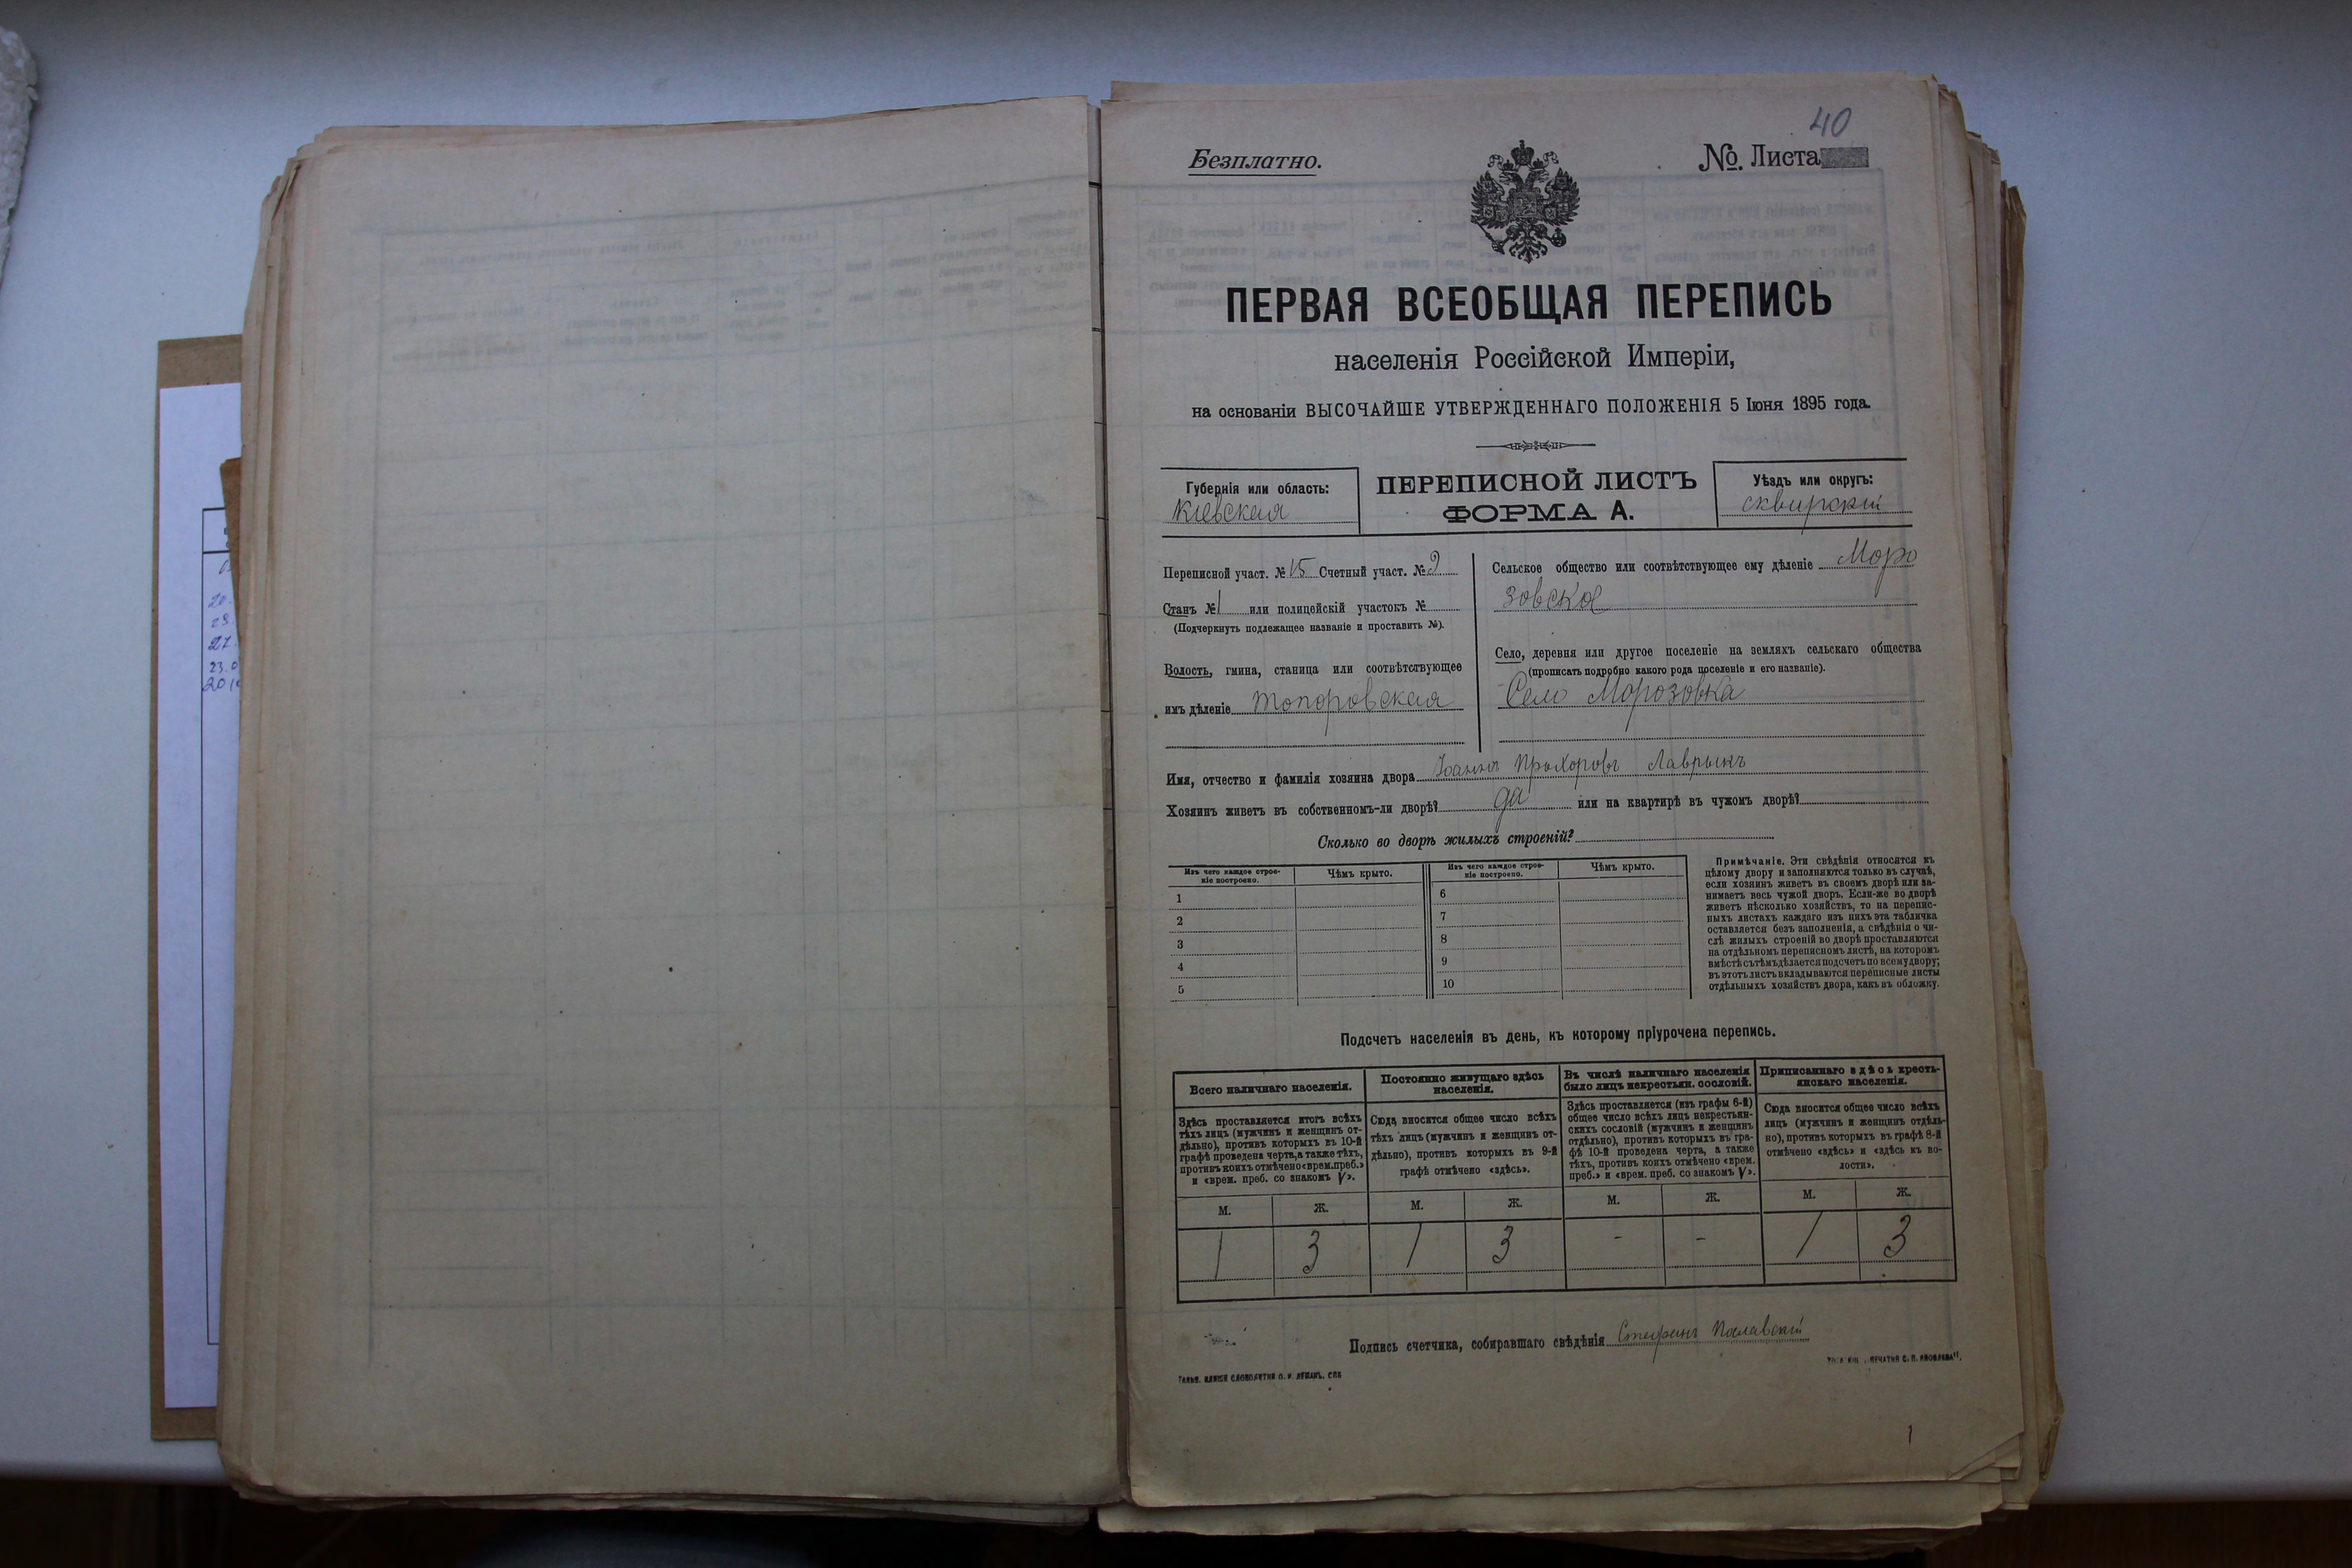 40
Безплатно.
№. Листа
ПЕРВАЯ ВСЕОБЩАЯ ПЕРЕПИСЬ
населенія Россійской Имперіи,
на основаніи ВЫСОЧАЙШЕ УТВЕРЖДЕННАГО ПОЛОЖЕНІЯ 5 Іюня 1895 года.
Губернія или область:
Кіевская
ПЕРЕПИСНОЙ ЛИСТЪ
ФОРМА А.
Уѣздъ или округъ:
сквирскій
Переписной участ. № 15 Счетный участ. № 9
Станъ № 1 или полицейскій участокъ №
(Подчеркнуть подлежащее названіе и проставить №).
Волость, гмина, станица или соотвѣтствующее
имъ дѣленіе Топоровская
Сельское общество или соотвѣтствующее ему дѣленіе Моро
зовское
Село, деревня или другое поселеніе на земляхъ сельскаго общества
(прописать подробно какого рода поселеніе и его названіе).
Село Морозовка
Имя, отчество и фамилія хозяина двора Іоаннъ Прохоровъ Лаврыкъ
Хозяинъ живетъ въ собственномъ-ли дворѣ? да или на квартирѣ въ чужомъ дворѣ?
Сколько во дворѣ жилыхъ строеній?
Изъ чего каждое строе-
ніе построено.
Чѣмъ крыто.
Изъ чего каждое строе-
ніе построено.
Чѣмъ крыто.
1
2
3
4
5
6
7
8
9
10
Примѣчаніе. Эти свѣдѣнія относятся къ
цѣлому двору и заполняются только въ случаѣ,
если хозяинъ живетъ въ своемъ дворѣ или за-
нимаетъ весь чужой дворъ. Если-же во дворѣ
живетъ нѣсколько хозяйствъ, то на перепис-
ныхъ листахъ каждаго изъ нихъ эта табличка
оставляется безъ заполненія, а свѣдѣнія о чи-
слѣ жилыхъ строеній во дворѣ проставляются
на отдѣльномъ переписномъ листѣ, на которомъ
вмѣстѣ съ тѣмъ дѣлается подсчетъ по всему двору;
въ этотъ листъ вкладываются переписные листы
отдѣльныхъ хозяйствъ двора, какъ въ обложку.
Подсчетъ населенія въ день, къ которому пріурочена перепись.
Всего наличнаго населенія.
Здѣсь проставляется итогъ всѣхъ
тѣхъ лицъ (мужчинъ и женщинъ от-
дѣльно), противъ которыхъ въ 10-й
графѣ проведена черта, а также тѣхъ,
противъ коихъ отмѣчено «врем. преб.»
и «врем. преб. со знакомъ V».
Постоянно живущаго здѣсь
населенія.
Сюда вносится общее число всѣхъ
тѣхъ лицъ (мужчинъ и женщинъ от-
дѣльно), противъ которыхъ въ 9-й
графѣ отмѣчено «здѣсь».
Въ числѣ наличнаго населенія
было лицъ некрестьян. сословій.
Здѣсь проставляется (изъ графы 6-й)
общее число всѣхъ лицъ некрестьян-
скихъ сословій (мужчинъ и женщинъ
отдѣльно), противъ которыхъ въ гра-
фѣ 10-й проведена черта, а также
тѣхъ, противъ коихъ отмѣчено «врем.
преб.» и «врем. преб. со знакомъ V».
Приписаннаго здѣсь кресть-
янскаго населенія.
Сюда вносится общее число всѣхъ
лицъ (мужчинъ и женщинъ отдѣль-
но), противъ которыхъ въ графѣ 8-й
отмѣчено «здѣсь» и «здѣсь къ во-
лости».
М. Ж. М. Ж. М. Ж. М. Ж.
1 3 1 3 - - 1 3
Подпись счетчика, собиравшаго свѣдѣнія Стефанъ Пославскій
1